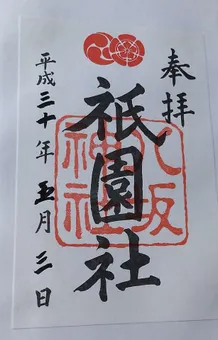 奉拝
祇園社
八坂神社
平成三十年五月三日